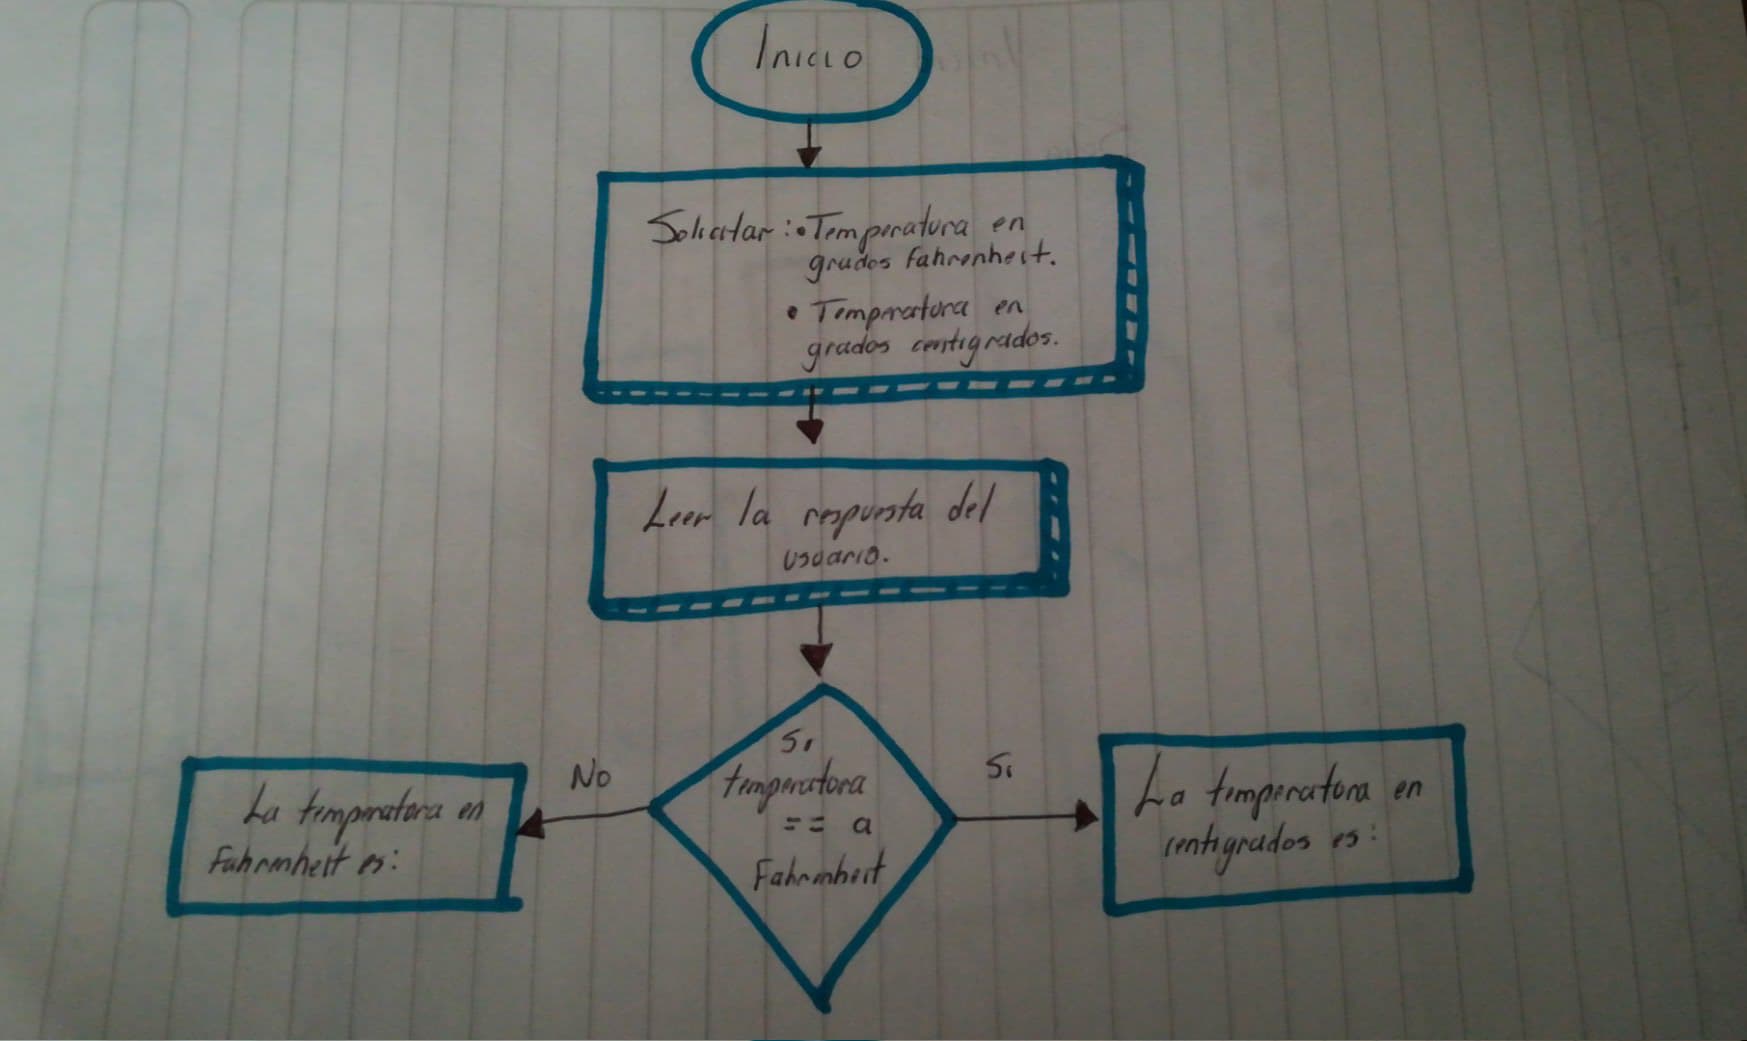 Inicio
Solicitar: • Temperatura en
grados fahrenheit.
• Temperatura en
grados centigrados.
Leer la respuesta del
usuario.
Si
temperatura
== a
Fahrenheit
No
La temperatura en
Fahrenheit es:
Si
La temperatura en
centigrados es: